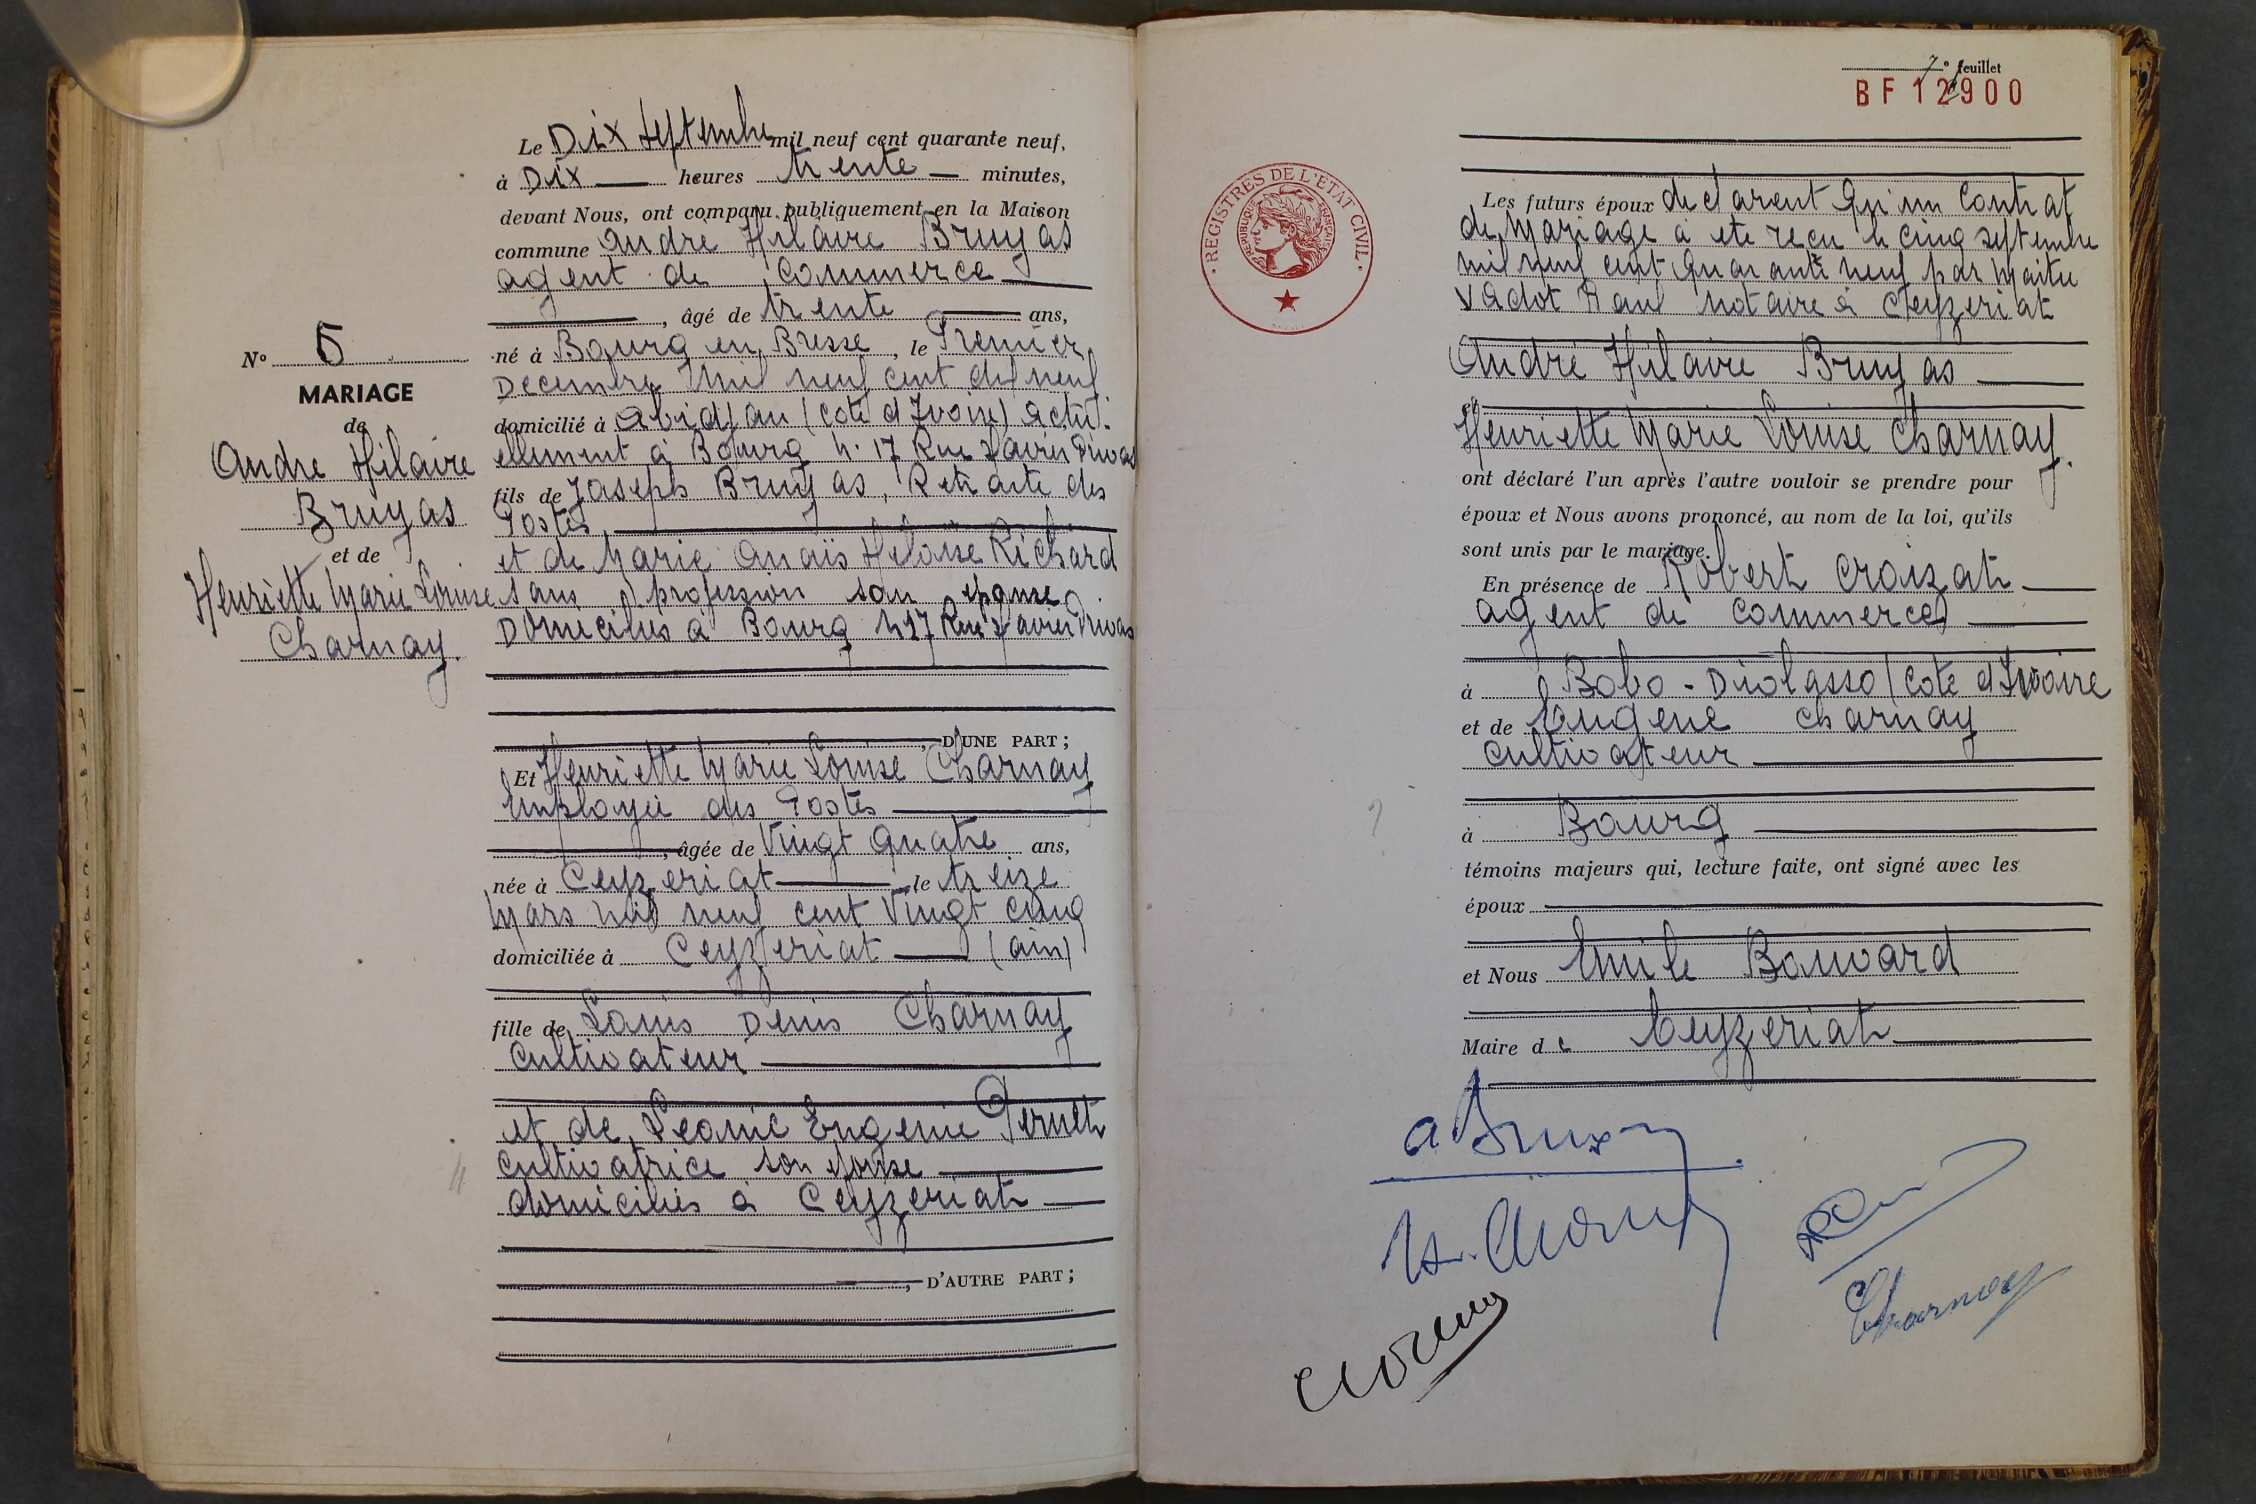 Le Dix Septembre mil neuf cent quarante neuf,
à Dix heures trente minutes,
devant Nous, ont comparu publiquement en la Maison
commune Andre Hilaire Bruyas
agent de commerce
, âgé de trente ans,
né à Bourg en Bresse, le Premier
Decembre mil neuf cent dix neuf
domicilié à Abidjan (cote d'Ivoire) actu-
ellement à Bourg n. 17 Rue Xavier Privas
fils de Joseph Bruyas, Retraite des
Postes
et de Marie Anaïs Héloïse Richard
sans profession son epouse
Domicilies à Bourg n 17 Rue Xavier Privas
, D'UNE PART ;
N° 5
MARIAGE
de
Andre Hilaire
Bruyas
et de
Henriette Marie Louise
Charnay.
Et Henriette Marie Louise Charnay
Employée des Postes
, âgée de Vingt Quatre ans,
née à Ceyzeriat le treize
Mars mil neuf cent Vingt cinq
domiciliée à Ceyzeriat (ain)
fille de Louis Denis Charnay
Cultivateur
et de Leonie Eugenie
cultivatrice son epouse
domicilies à Ceyzeriat
, D'AUTRE PART ;
7 e feuillet
BF 12900
REGISTRES DE L'ETAT CIVIL
REPUBLIQUE FRANÇAISE
Les futurs époux declarent Qu'un Contrat
de Mariage a ete reçu le cinq septembre
mil neuf cent Quarante neuf par Maitre
Vadot notaire à Ceyzeriat
André Hilaire Bruyas
et
Henriette Marie Louise Charnay.
ont déclaré l'un après l'autre vouloir se prendre pour
époux et Nous avons prononcé, au nom de la loi, qu'ils
sont unis par le mariage.
En présence de Robert Croizat
agent de commerce
à Bobo-Diolasso (cote d'Ivoire
et de Eugene Charnay
Cultivateur
à Bourg
témoins majeurs qui, lecture faite, ont signé avec les
époux
et Nous Emile Bouvard
Maire de Ceyzeriat
Charnay